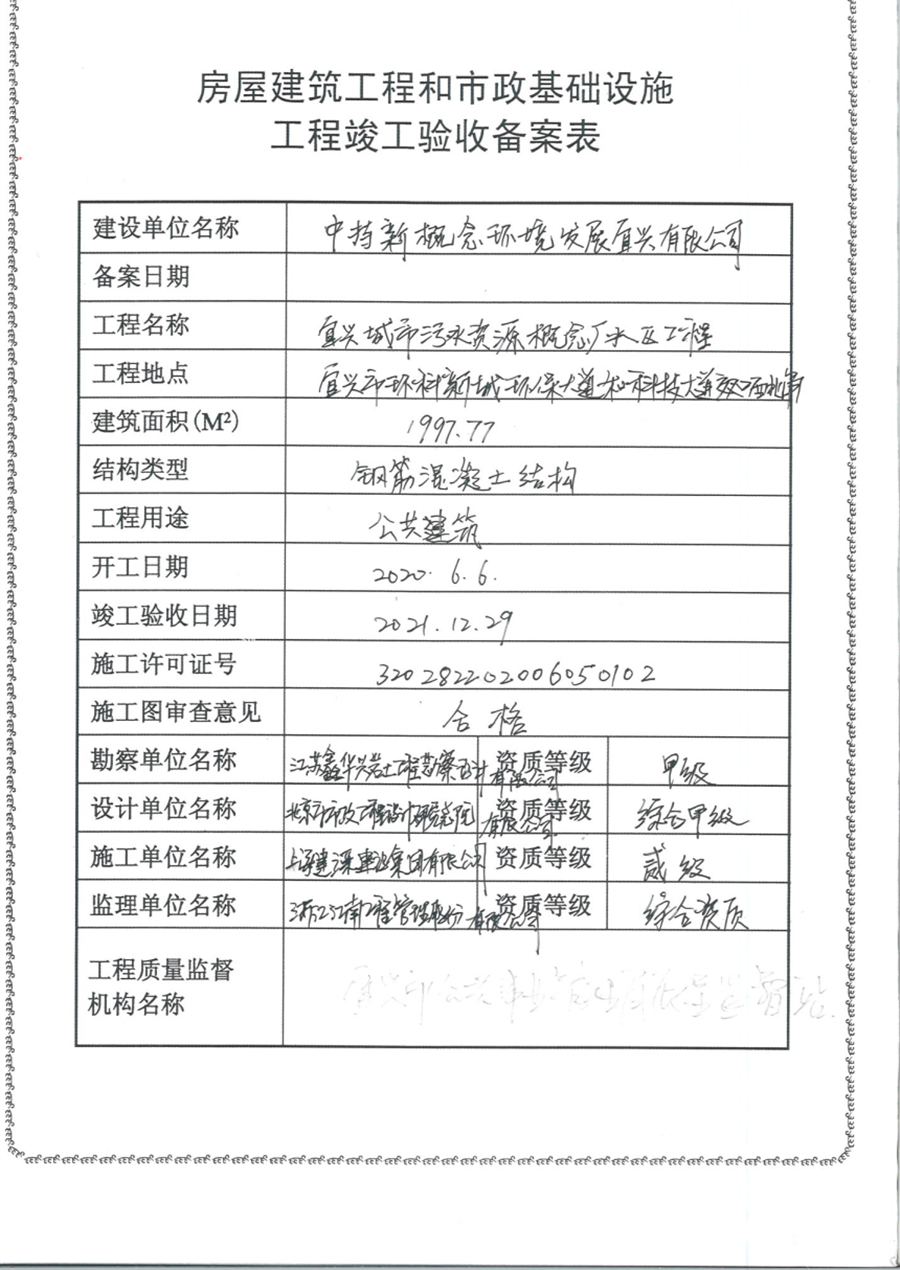 房屋建筑工程和市政基础设施
工程竣工验收备案表
建设单位名称 中持新概念环境发展宜兴有限公司
备案日期
工程名称 宜兴城市污水资源概念厂水区工程
工程地点 宜兴市环科新城环保大道和科技大道
建筑面积(M²) 1997.77
结构类型 钢筋混凝土结构
工程用途 公共建筑
开工日期 2020. 6. 6.
竣工验收日期 2021. 12. 29
施工许可证号 320282202006050102
施工图审查意见 合格
勘察单位名称 江苏鑫华兴岩土工程勘察设计有限公司 资质等级 甲级
设计单位名称 北京市市政工程设计研究总院有限公司 资质等级 综合甲级
施工单位名称 上海建深建设集团有限公司 资质等级 贰级
监理单位名称 浙江江南工程管理股份有限公司 资质等级 综合资质
工程质量监督
机构名称